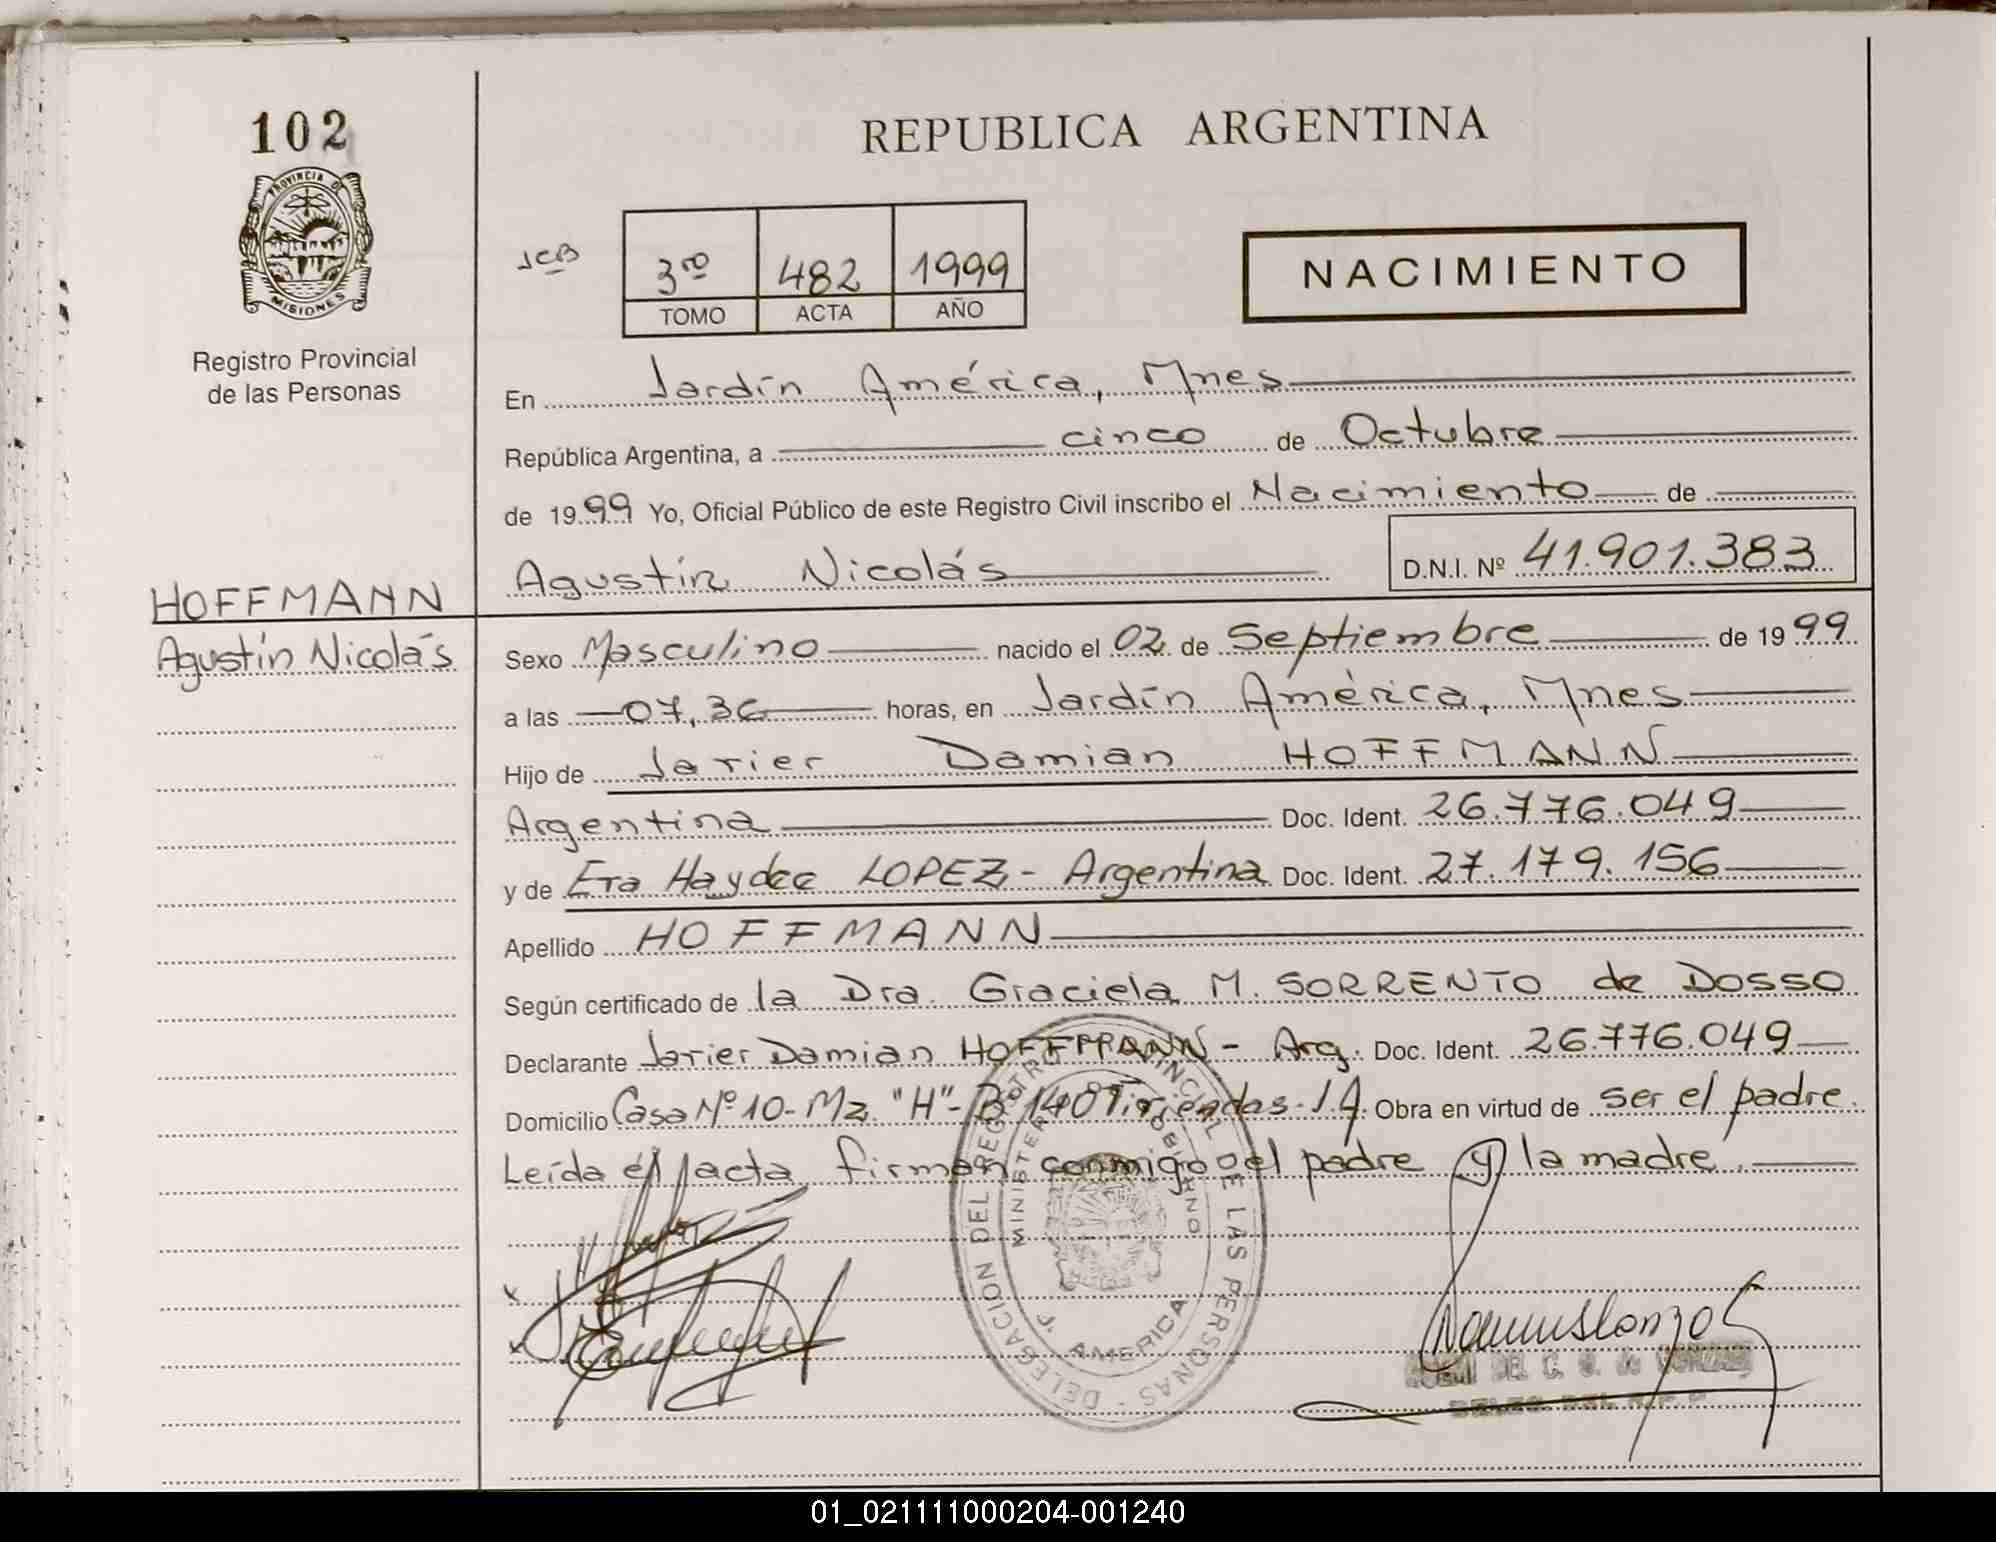 102
PROVINCIA DE
MISIONES
Registro Provincial
de las Personas
HOFFMANN
Agustín Nicolás
REPUBLICA ARGENTINA
JCB
3ro 482 1999
TOMO ACTA AÑO
NACIMIENTO
En Jardín América, Mnes
República Argentina, a cinco de Octubre
de 1999 Yo, Oficial Público de este Registro Civil inscribo el Nacimiento de
Agustín Nicolás D.N.I. Nº 41.901.383
Sexo Masculino nacido el 02 de Septiembre de 1999
a las 07,36 horas, en Jardín América, Mnes
Hijo de Javier Damian HOFFMANN
Argentina Doc. Ident. 26.776.049
y de Eva Haydee LOPEZ - Argentina Doc. Ident. 27.179.156
Apellido HOFFMANN
Según certificado de la Dra. Graciela M. SORRENTO de DOSSO
Declarante Javier Damian HOFFMANN - Arg. Doc. Ident. 26.776.049
Domicilio Casa Nº 10 - Mz. "H" - Bº 140 Viviendas - J A. Obra en virtud de ser el padre.
Leída el acta, firman conmigo el padre y la madre.
DELEGACION DEL REGISTRO PROVINCIAL DE LAS PERSONAS
J. AMERICA
DELEG. DEL R.P.P.
01_021111000204-001240